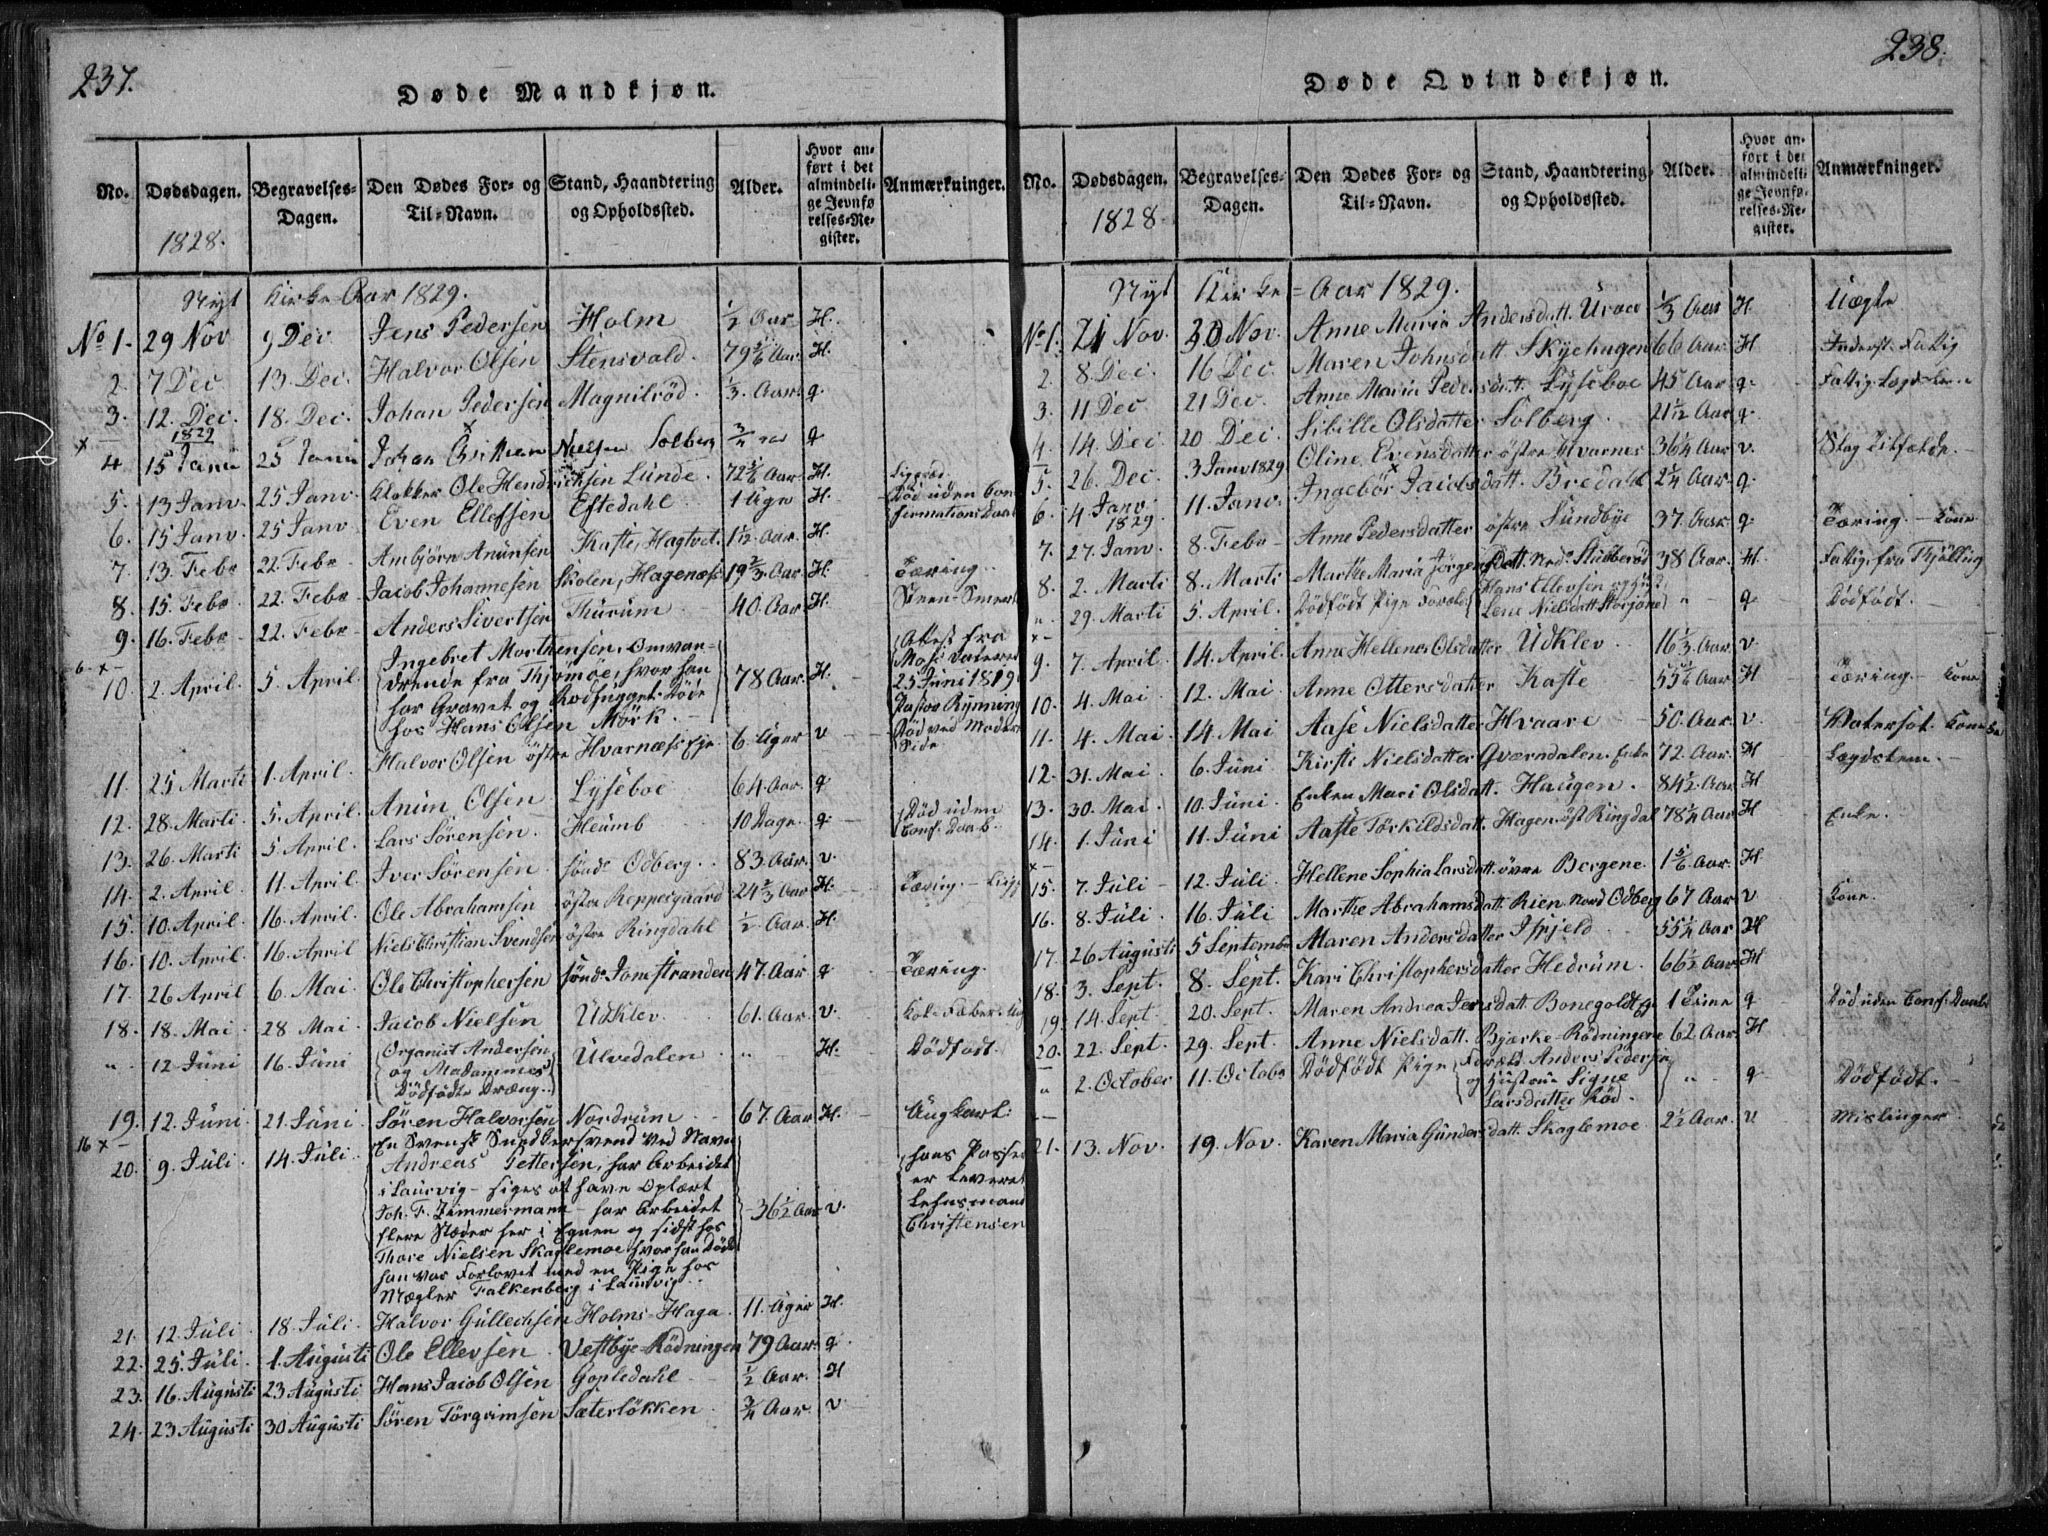 237.
Døde Mandkjøn.
No. Dødsdagen. Begravelses-Dagen. Den Dødes For- og Til-Navn. Stand, Haandtering og Opholdssted. Alder. Hvor anført i det almindelige Jevnførelses-Register. Anmærkninger.
1828.
Nyt Kirke-Aar 1829.
No 1. 29 Nov 9 Dec Jens Pedersen Holm ½ Aar H.
2. 7 Dec 13. Dec. Halvor Olsen Stensvald. 79 Aar. H.
3. 12. Dec. 18. Dec. Johan Pedersen Magnilröd. ⅓ Aar q.
1829
4 15 Janu 25 Janu Johan Christian Nielsen Solberg q
5. 13 Janv. 25 Janv. Klokker Ole Hendrichsen Lunde. 72 Aar. H.
6. 15 Janv. 25 Janv. Even Ellefsen Eftedahl 1 Uge H. Död uden Confirmations Daab
7. 13. Febr 22. Febr. Ambjörn Anunsen Kaste, Hagtvet. 1½ Aar. H.
8. 15. Febr 22. Febr. Jacob Johannesen Skolen, Hagenæs 19⅔ Aar H. Tæring.
9. 16. Febr 22. Febr Anders Sivertsen Thurum 40. Aar H.
10. 2. April. 5. April. Ingebret Morthensen, Omvan-
drende fra Thjömöe, hvor han
har Gravet og Rodhugget. Döde
hos Hans Olsen Mörk. 78 Aar. H.
Attest fra
25 Juni 1819
Pastor Rynning
11. 25 Marti 1. April. Halvor Olsen östre Hvarnæs Eje 6 Uger v Död ved Moders Side
12. 28. Marti. 5. April. Anun Olsen Lyseboe 64. Aar. q
13. 26. Marti 5 April. Lars Sörensen. Heumb 10 Dage. q. Död uden Conf. Daab.
14. 2. April. 11 April. Iver Sörensen söndr Odberg. 83 Aar. v.
15. 10. April. 16. April. Ole Abrahamsen östre Reppesgaard 24⅔ Aar H. Tæring.
16. 10. April. 16. April Niels Christian Svendsen östre Ringdahl ½ Aar. H.
17. 26 April 6. Mai. Ole Christophersen söndr Jomstranden 47. Aar q Tæring.
18. 18. Mai. 28 Mai. Jacob Nielsen Udklev. 61. Aar. v.
" 12 Juni 16. Juni Organist Andersen
og Madammes
Dödfödte Dræng. Ulvedalen " H. Dödfödt.
19. 12. Juni. 21. Juni. Sören Halvorsen Nordrum 67. Aar H. Ungkarl.
20. 9. Juli. 14. Juli. En Svensk Snedkersvend ved Navn
Andreas Pettersen, har Arbeidet
i Laurvig - siges at have Oplært
Joh. F. Zimmermann - har Arbeidet
flere Stæder her i Egnen og sidst hos
Thore Nielsen Skaglemoe hvor han Döde
han var Forlovet med en Pige hos
Mægler Falkenberg i Laurvig. 36½ Aar v.
hans Passer
er leveret
Lehnsmand
Christensen
21. 12. Juli. 18. Juli. Halvor Gullechsen Holms-Haga 11. Uger H.
22. 25. Juli. 1. Augusti Ole Ellevsen Vestbye-Rödningen 79 Aar. q.
23. 16. Augusti 23 Augusti Hans Jacob Olsen Gopledahl ½ Aar. H
24. 23 Augusti 30 Augusti Sören Törgrimsen Sæterlökken ¾ Aar. v
238.
Døde Qvindekjøn.
No. Dødsdagen. Begravelses-Dagen. Den Dødes For- og Til-Navn. Stand, Haandtering og Opholdssted. Alder. Hvor anført i det almindelige Jevnførelses-Register. Anmærkninger.
1828
Nyt Kirke=Aar 1829.
No 1. 21 Nov. 30 Nov. Anne Maria Andersdatt. Uraa ⅓ Aar H Uægte
2. 8. Dec. 16 Dec. Maren Johnsdatt Skychugen 66 Aar. H Inderst. Fattig
3. 11 Dec 21 Dec. Anne Maria Pedersdatt. Lyseboe 45 Aar q. Fattig.
4. 14. Dec. 20 Dec. Sibille Olsdatter Solberg. 21½ Aar q.
5. 26. Dec. 3 Janv 1829 Oline Evensdatter östre Hvarnes 36¼ Aar v. Slag
6. 4. Janv. 1829. 11. Janv. Ingebör Jacobsdatt. Bredahl 2¼ Aar. q.
7. 27. Janv. 8. Febr Anne Pedersdatter östre Sundbye 37. Aar q. Tæring. - Kone
8. 2. Marti 8. Marti Marthe Maria Jörgensdatt. Ned. Stubberöd 38 Aar. H. Fattig, fra Thjölling
" 29. Marti 5. April. Dödfödt Pige Foræld. Hans Ellevsen og
Lene Nielsdatt Storjone " q Dödfödt.
9. 7. April. 14. April. Anne Hellene Olsdatter Udklev 16⅓ Aar. v
10. 4. Mai. 12. Mai. Anne Ottersdatter Kaste 55 Aar. H Tæring. - Kone
11. 4. Mai. 14. Mai Aase Nielsdatter Hvaare 50. Aar. v. Watersot. Kone
12. 31. Mai. 6. Juni Kirsti Nielsdatter Qværndalen. Enke 72. Aar. H Lægdslem.
13. 30. Mai. 10. Juni. Enken Mari Olsdatt. Haugen. 84½ Aar. H
14. 1. Juni. 11. Juni Aaste Törkildsdatt. Hagen. öst Ringdal 78¼ Aar H Enke.
15. 7. Juli 12. Juli. Hellene Sophia Larsdatt. övre Bergene. 1⅚ Aar. H
16. 8. Juli. 16. Juli Marthe Abrahamsdatt. Rien. Nord Odberg 67 Aar v Kone.
17. 26 Augusti 5 Septembr Maren Andersdatter Isfjeld 55¼ Aar H
18. 3. Sept. 8. Sept. Kari Christophersdatter Hedrum. 66½ Aar. H
19. 14. Sept. 20. Sept. Maren Andrea Jensdatt. Bonegoldt Ej 1 Time q Död uden Conf. Daab
20. 22. Sept. 29. Sept. Anne Nielsdatt. Bjerke-Rödningene 62. Aar. H
" 2. October 11. Octobr Dödfödt Pige Foræld. Anders Pedersen
og Hustrue Signe
Larsdatter Röd. " q Dödfödt.
21. 13. Nov. 19. Nov. Karen Maria Gundersdatt. Skaglemoe 2½ Aar. v Mislinger